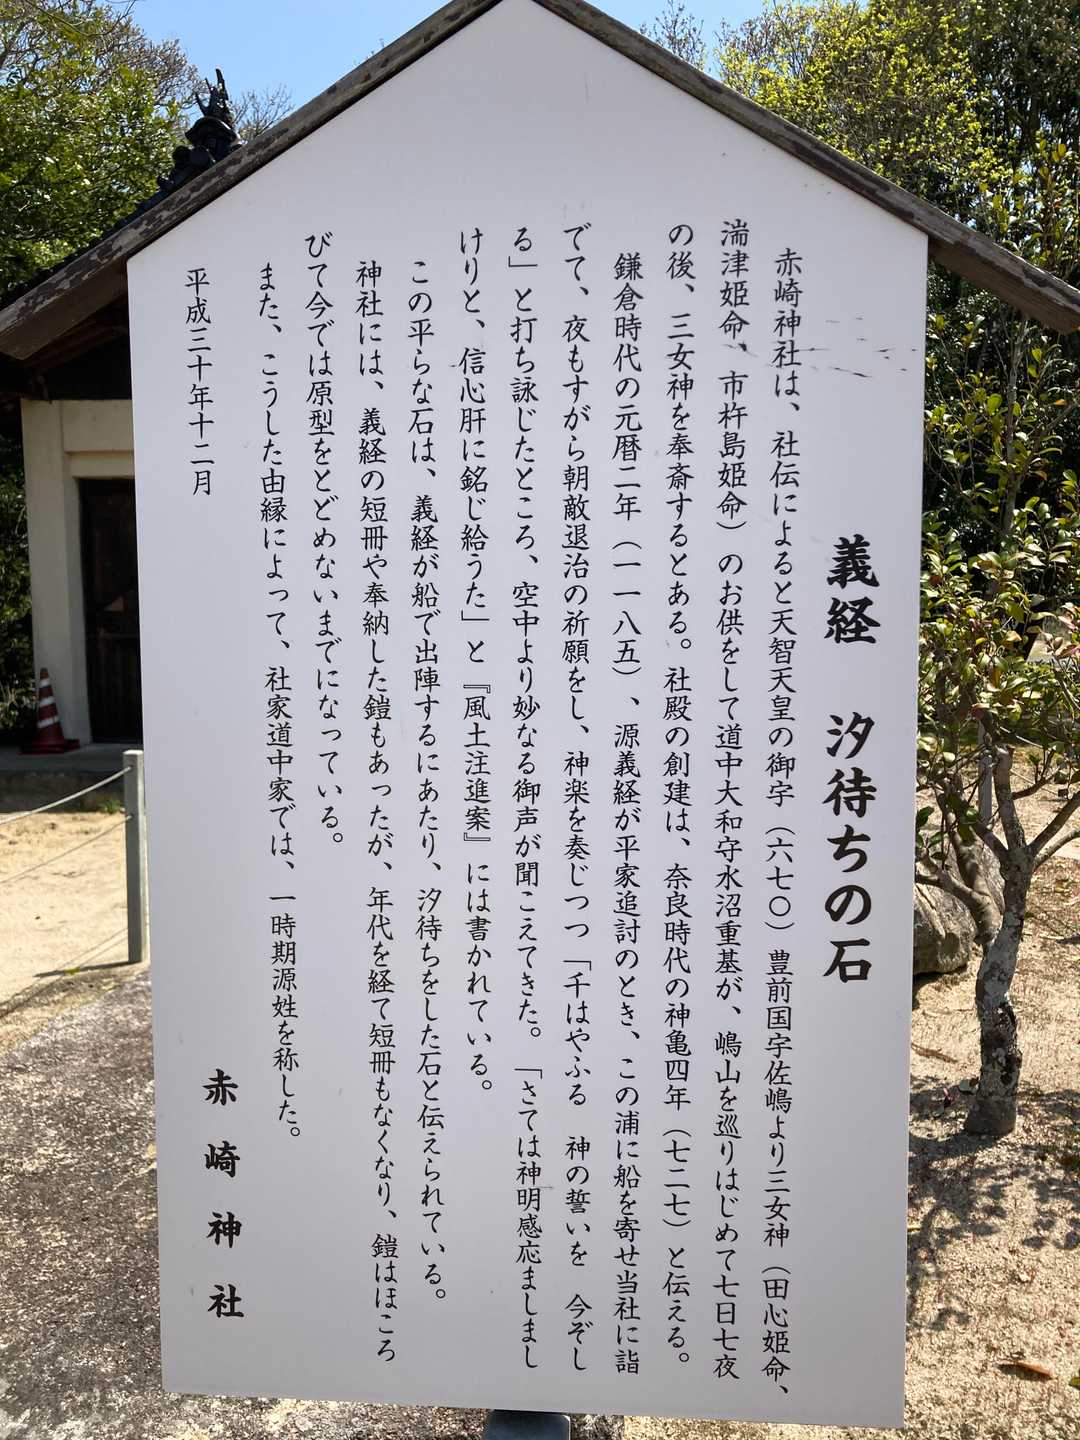 義経　汐待ちの石
赤崎神社は、社伝によると天智天皇の御宇（六七〇）豊前国宇佐嶋より三女神（田心姫命、
湍津姫命、市杵島姫命）のお供をして道中大和守水沼重基が、嶋山を巡りはじめて七日七夜
の後、三女神を奉斎するとある。社殿の創建は、奈良時代の神亀四年（七二七）と伝える。
鎌倉時代の元暦二年（一一八五）、源義経が平家追討のとき、この浦に船を寄せ当社に詣
でて、夜もすがら朝敵退治の祈願をし、神楽を奏じつつ「千はやふる　神の誓いを　今ぞし
る」と打ち詠じたところ、空中より妙なる御声が聞こえてきた。「さては神明感応ましまし
けりと、信心肝に銘じ給うた」と『風土注進案』には書かれている。
この平らな石は、義経が船で出陣するにあたり、汐待ちをした石と伝えられている。
神社には、義経の短冊や奉納した鎧もあったが、年代を経て短冊もなくなり、鎧はほころ
びて今では原型をとどめないまでになっている。
また、こうした由縁によって、社家道中家では、一時期源姓を称した。
平成三十年十二月
赤崎神社